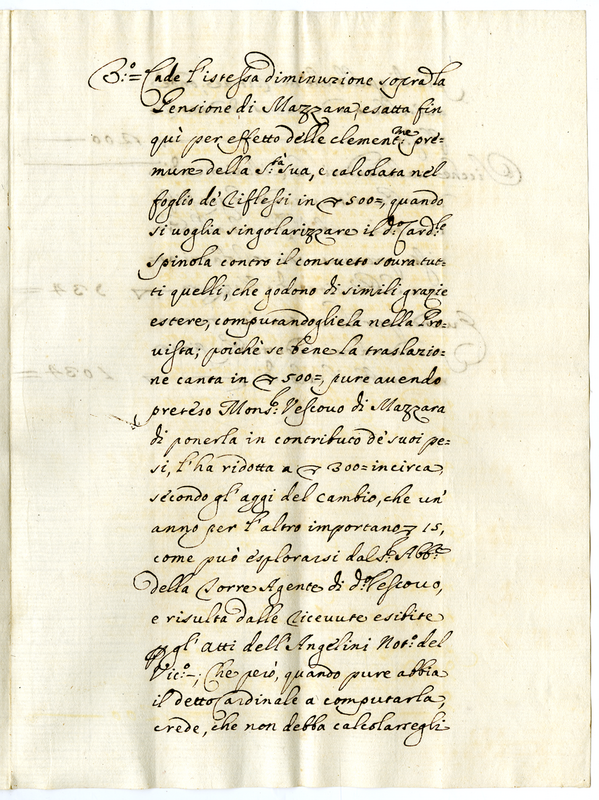 3.º= Cade l'istessa diminuzione sopra la
Pensione di Mazzara, esatta fin
quì per effetto delle clement.me pre=
mure della S.tà Sua, e calcolata nel
foglio de' Riflessi in ▽ 500=, quando
si voglia singolarizzare il d.º Card.le
Spinola contro il consueto sovra tut=
ti quelli, che godono di simili grazie
estere, computandogliela nella Pro=
vista; poichè se bene la traslazio=
ne canta in ▽ 500=, pure avendo
preteso Mons.r Vescovo di Mazzara
di ponerla in contributo de' suoi pe=
si, l'ha ridotta a ▽ 300= incirca
secondo gl'aggi del Cambio, che un'
anno per l'altro importano ▽ 15,
come può esplorarsi dal S.r Abb.e
della Torre Agente di d.º Vescovo,
e risulta dalle ricevute esibite
p gl'Atti dell'Angelini Not.º del
Vic.º-; Che però, quando pure abbia
il detto Cardinale a computarla,
crede, che non debba calcolarsegli